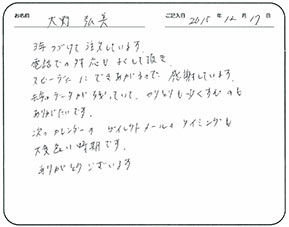 お名前 大 弘美 ご記入日 2015年12月17日
3年つづけて注文しています。
電話での対応もよくして頂き、
スピーディにできあがるので感謝しています。
去年のデータが残っていて、やりとりも少なくすむのも
ありがたいです。
次のカレンダーのダイレクトメールのタイミングも
大変良い時期です。
ありがとうございます